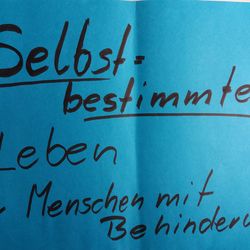 Selbst=
bestimmte
Leben
Menschen mit
Behinderu